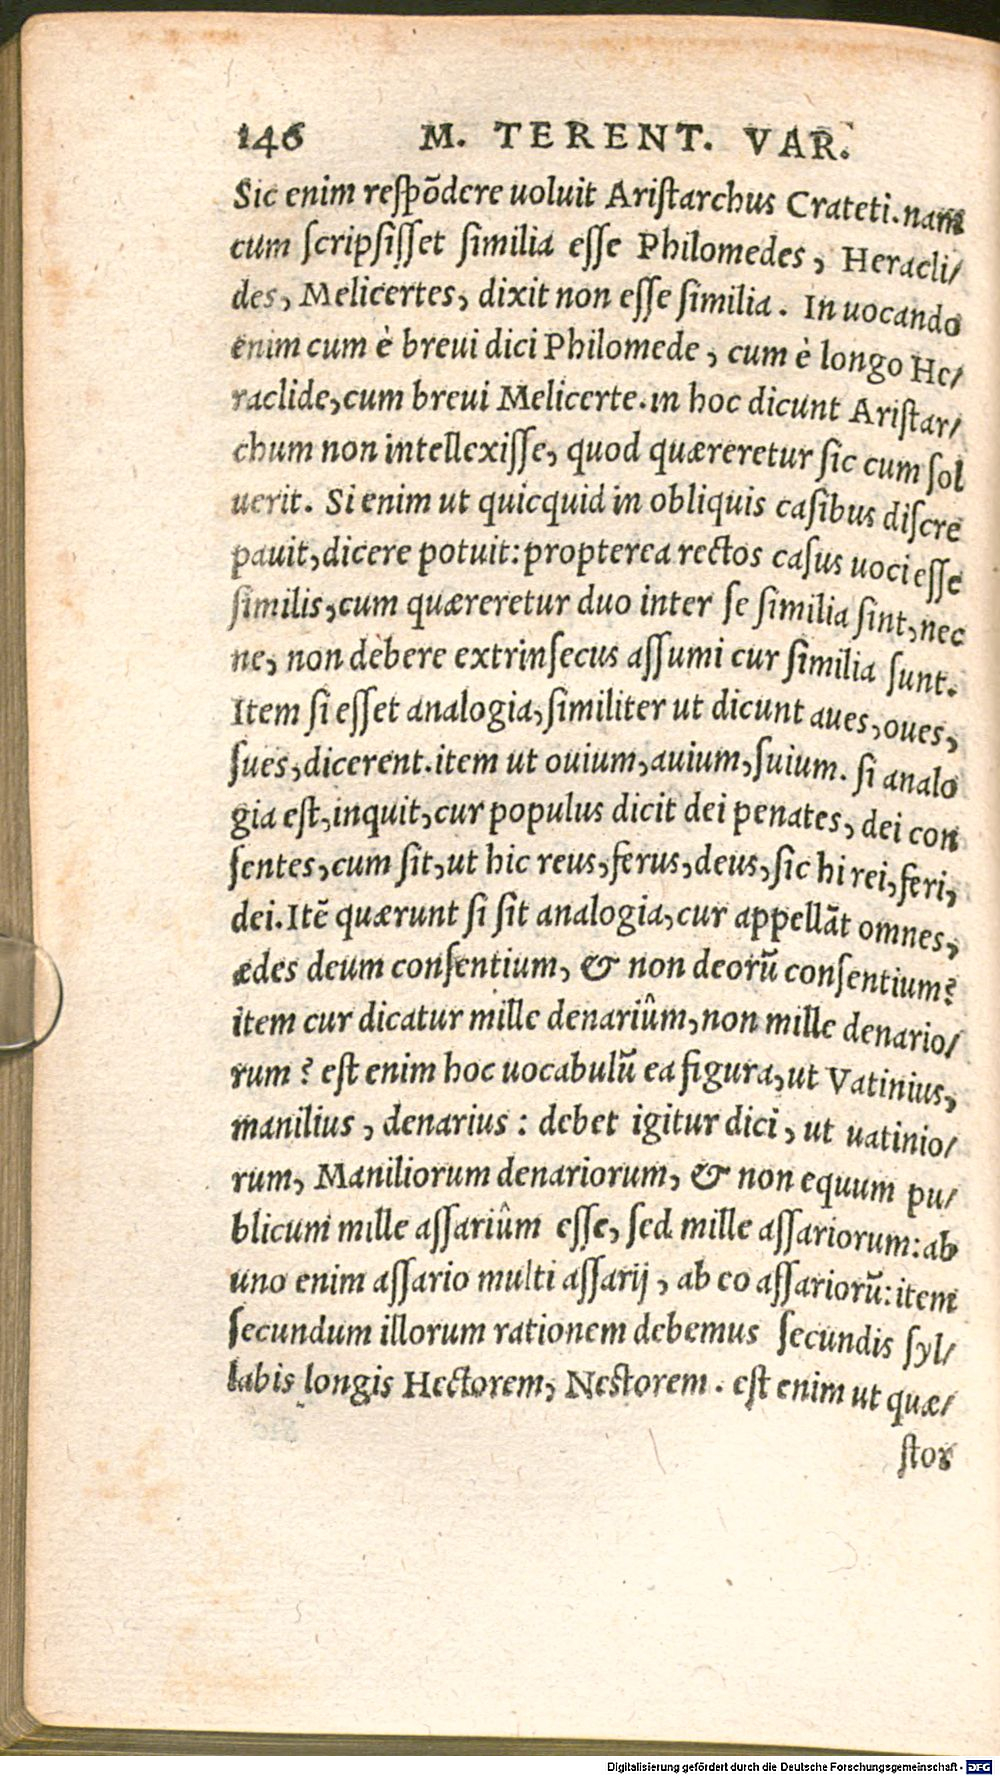 146 M. TERENT. VAR.
Sic enim respõdere uoluit Aristarchus Crateti. nam
cum scripsisset similia esse Philomedes, Heracli/
des, Melicertes, dixit non esse similia. In uocando
enim cum è breui dici Philomede, cum è longo He/
raclide, cum breui Melicerte. in hoc dicunt Aristar/
chum non intellexisse, quod quæreretur sic cum sol
uerit. Si enim ut quicquid in obliquis casibus discre
pauit, dicere potuit: propterea rectos casus uoci esse
similis, cum quæreretur duo inter se similia sint, nec
ne, non debere extrinsecus assumi cur similia sunt.
Item si esset analogia, similiter ut dicunt aues, oues,
sues, dicerent. item ut ouium, auium, suium. si analo
gia est, inquit, cur populus dicit dei penates, dei con
sentes, cum sit, ut hic reus, ferus, deus, sic hi rei, feri,
dei. Itẽ quærunt si sit analogia, cur appellãt omnes,
ædes deum consentium, & non deorũ consentium?
item cur dicatur mille denariûm, non mille denario/
rum? est enim hoc uocabulũ ea figura, ut Vatinius,
manilius, denarius: debet igitur dici, ut uatinio/
rum, Maniliorum denariorum, & non equum pu/
blicum mille assariûm esse, sed mille assariorum: ab
uno enim assario multi assarij, ab eo assariorũ: item
secundum illorum rationem debemus secundis syl/
labis longis Hectorem, Nestorem. est enim ut quæ/
stor
Digitalisierung gefördert durch die Deutsche Forschungsgemeinschaft - DFG